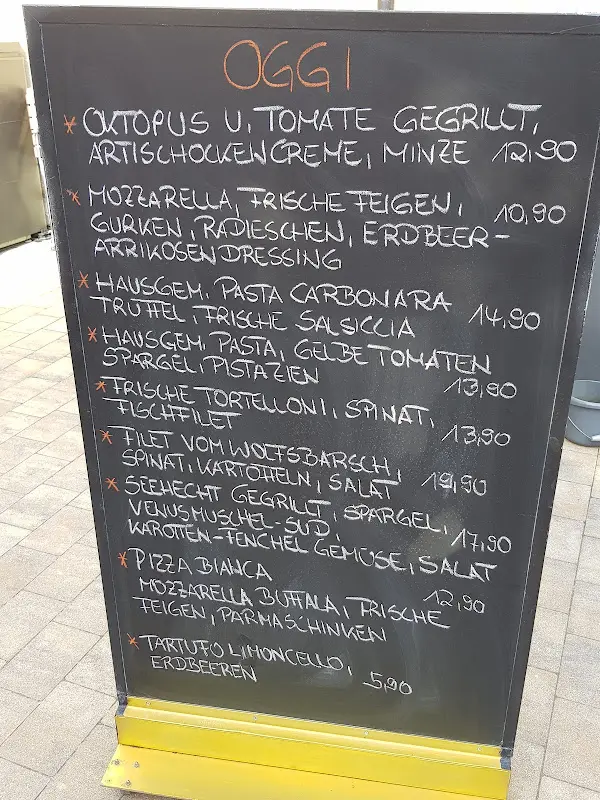 OGGI
* OKTOPUS U. TOMATE GEGRILLT,
ARTISCHOCKENCREME, MINZE 12,90
* MOZZARELLA, FRISCHE FEIGEN, 10,90
GURKEN, RADIESCHEN, ERDBEER-
ARRIKOSENDRESSING
* HAUSGEM. PASTA CARBONARA
TRÜFFEL, FRISCHE SALSICCIA 14,90
* HAUSGEM. PASTA, GELBE TOMATEN
SPARGEL, PISTAZIEN 13,90
* FRISCHE TORTELLONI, SPINAT,
FISCHFILET 13,90
* FILET VOM WOLFSBARSCH,
SPINAT, KARTOFFELN, SALAT 19,90
* SEEHECHT GEGRILLT, SPARGEL,
VENUSMUSCHEL-SUD, 17,90
KAROTTEN-FENCHEL GEMÜSE, SALAT
* PIZZA BIANCA 12,90
MOZZARELLA BUFFALA, FRISCHE
FEIGEN, PARMASCHINKEN
* TARTUFO LIMONCELLO,
ERDBEEREN 5,90